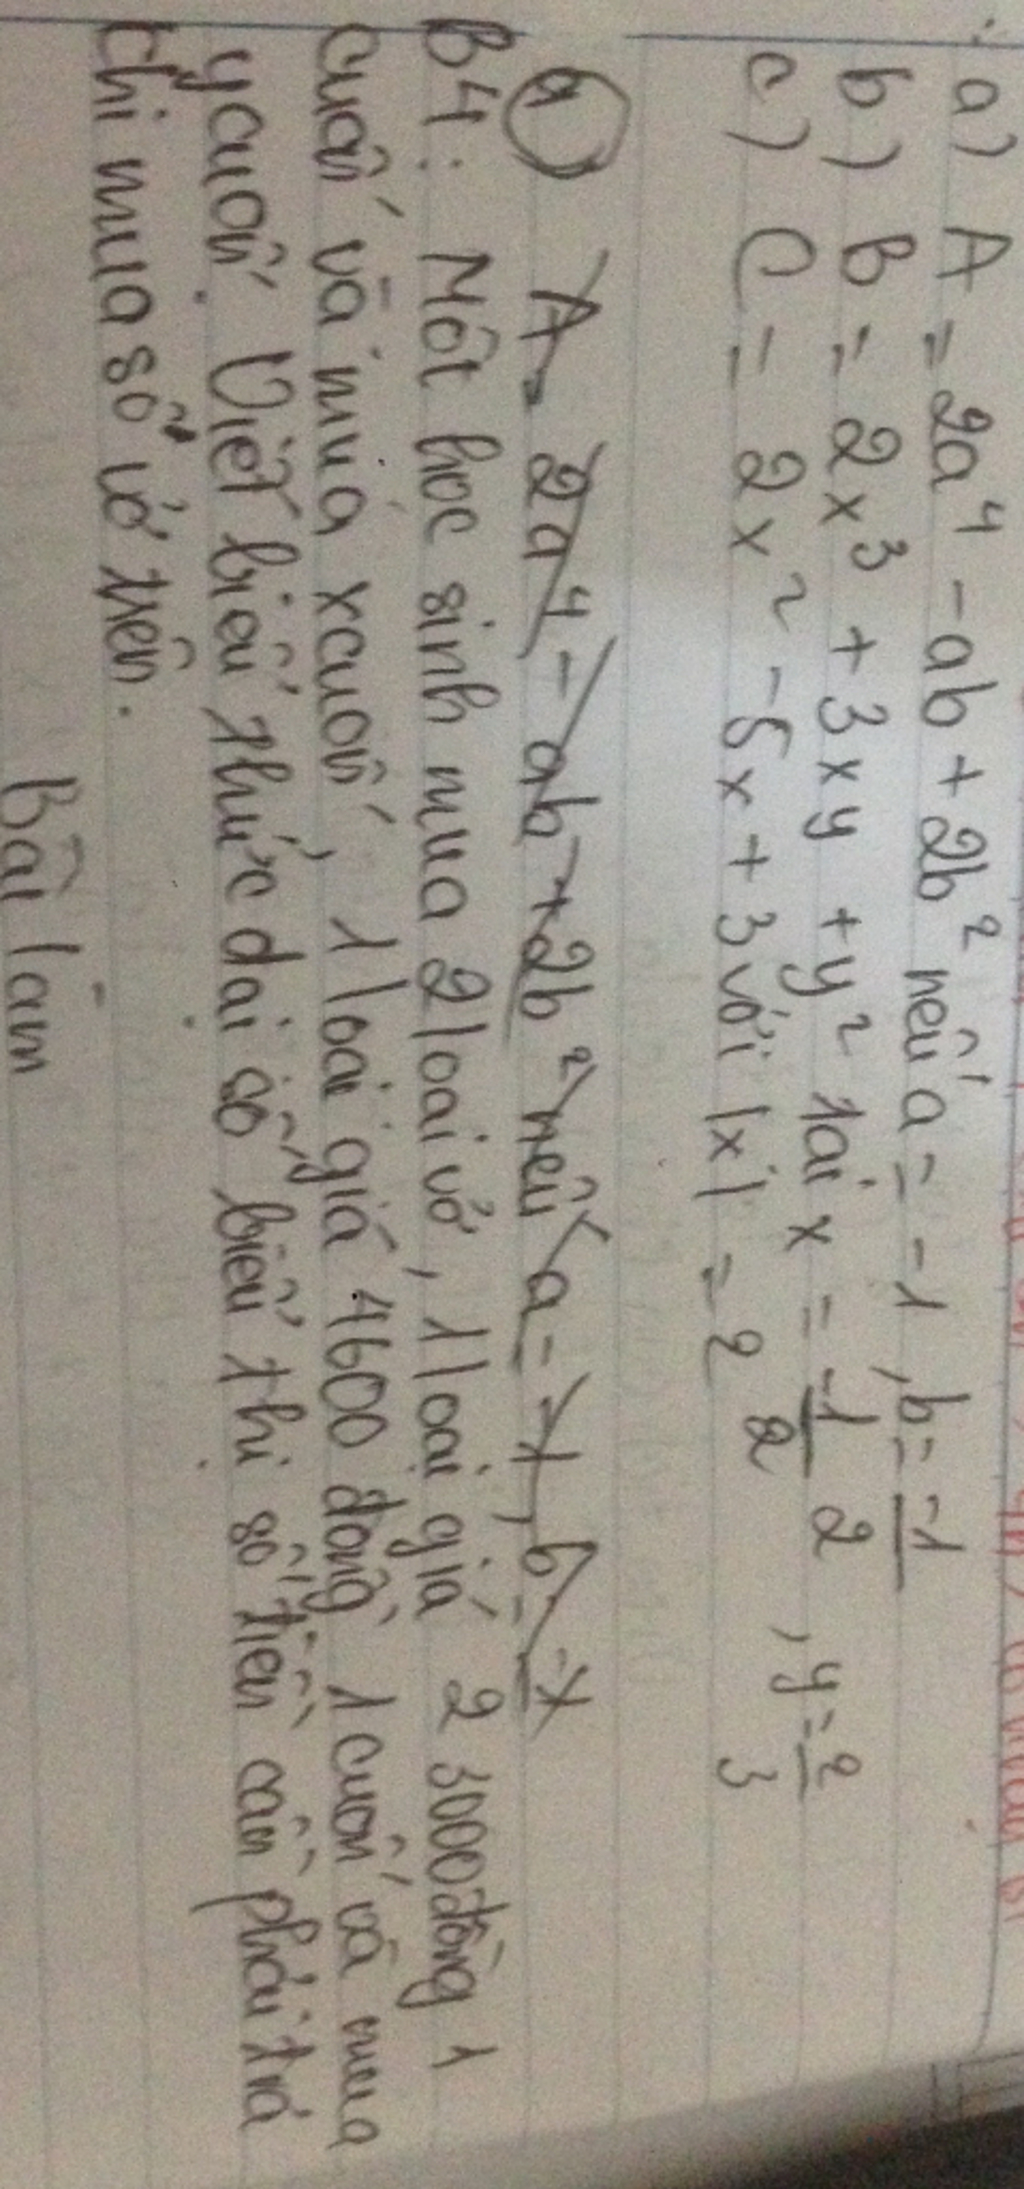 a) A = 2a⁴ - ab + 2b² nếu a = -1, b = -1
b) B = 2x³ + 3xy + y² tại x = -1/2 2 , y = 2/3
c) C = 2x² - 5x + 3 với |x| = 2
a) A = 2a⁴ - ab + 2b² nếu a = -1, b = -1
B4: Một học sinh mua 2 loại vở, 1 loại giá 2 3000 đồng 1
cuốn và mua x cuốn, 1 loại giá 4600 đồng 1 cuốn và mua
y cuốn. Viết biểu thức đại số biểu thị số tiền cần phải trả
chi mua số vở trên.
Bài làm